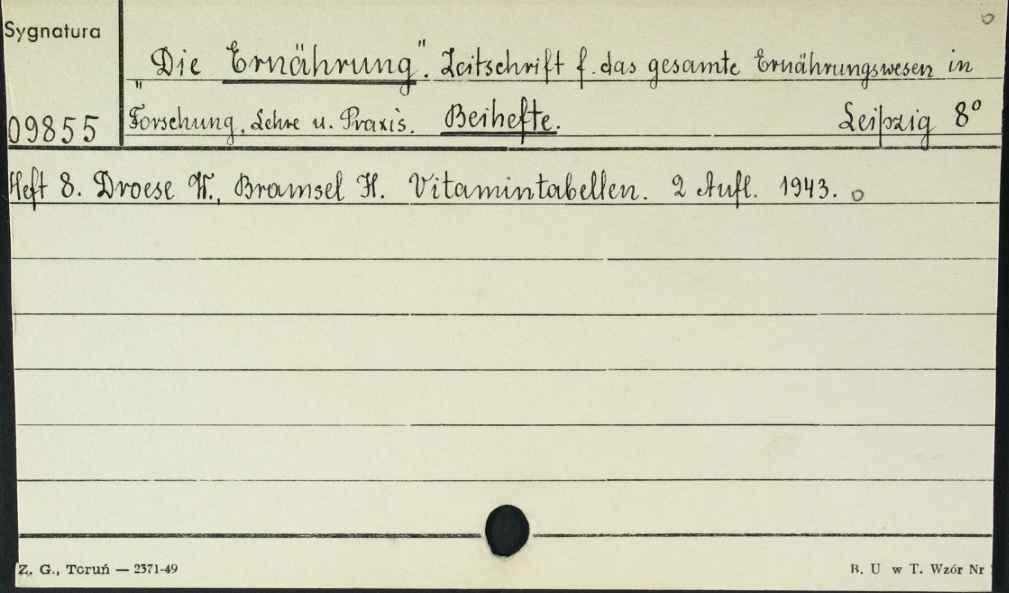 Sygnatura
„Die Ernährung". Zeitschrift f. das gesamte Ernährungswesen in
09855 Forschung, Lehre u. Praxis. Beihefte. Leipzig 8°
Heft 8. Droese W., Bramsel H. Vitamintabellen. 2 Aufl. 1943.
Z. G., Toruń — 2371-49 B. U w T. Wzór Nr